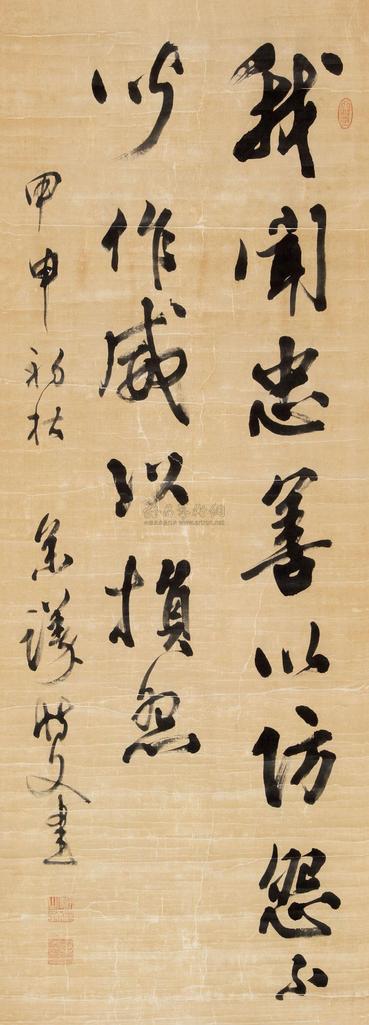 我聞忠善以防怨不
聞作威以損怨
甲申初秋 時文書